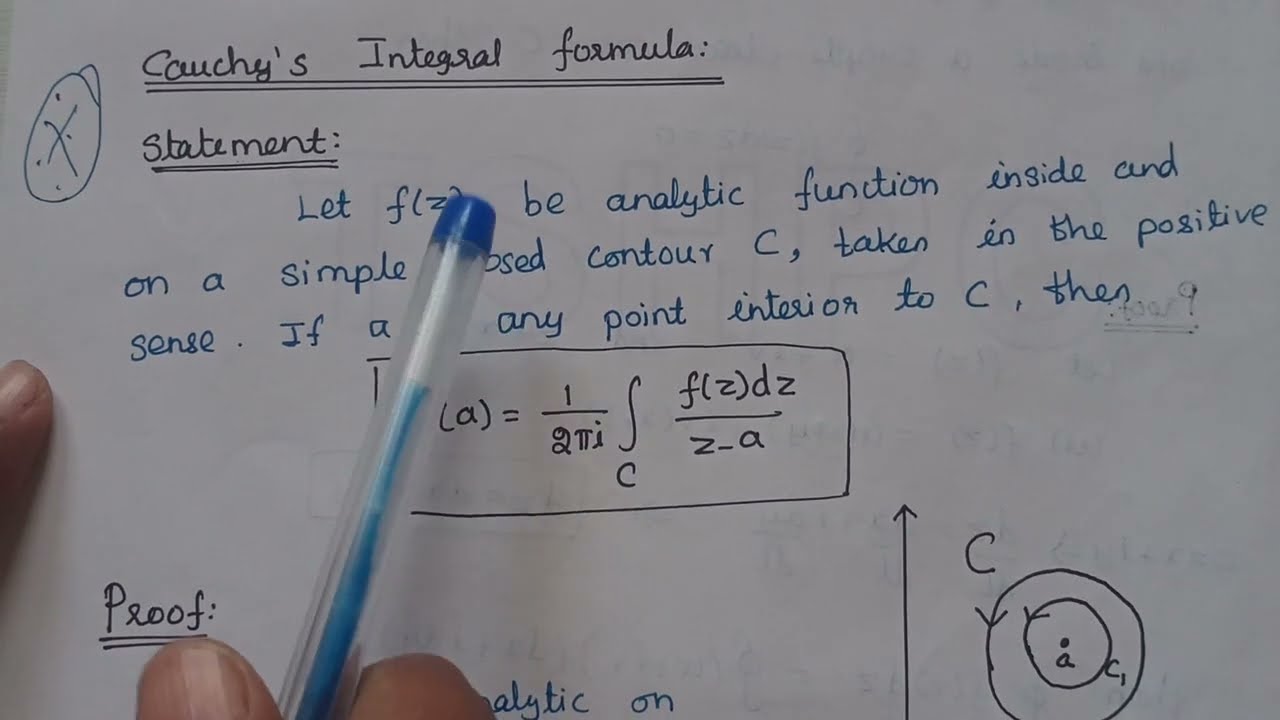 Cauchy's Integral formula:
X
Statement:
Let f(z) be analytic function inside and
on a simple osed contour C, taken in the positive
sense. If a any point interior to C, then
(a) = 1/2πi ∫C f(z)dz/z-a
C
a
C1
Proof:
alytic on